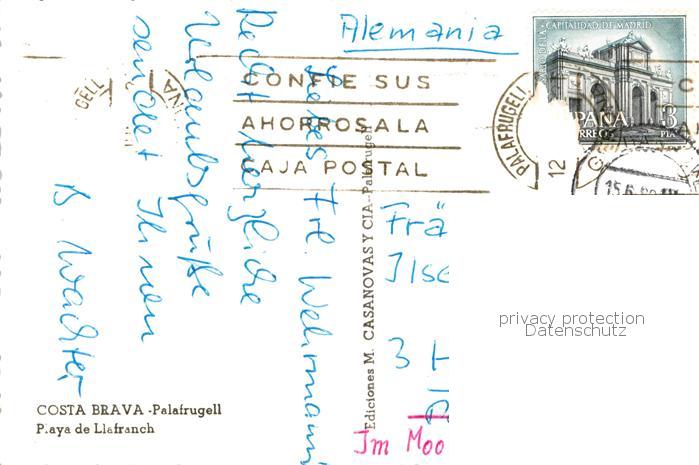 Alemania
CAPITALIDAD DE MADRID
ESPAÑA
CORREOS
3
PTA
CONFIE SUS
AHORROS A LA
CAJA POSTAL
PALAFRUGELL
12
GELL
Liebes Frl. Wehrmann
Recht herzliche
Urlaubsgrüße
sendet Ihnen
B. Wachter
Ediciones M. CASANOVAS Y CIA.-Palafrugell
Frä
Ilse
3
Im Moo
privacy protection
Datenschutz
COSTA BRAVA -Palafrugell
Playa de Llafranch